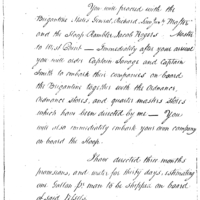 You will proceed with the
Brigantine
and the Sloop Rambler Master
to West Point — Immediately after your arrival
you will order Captain Savage and Captain
to embark their companies on board
the Brigantine together with the Ordnance,
Ordnance Stores, and quarter masters Stores
which have been directed by me — You
will also immediately embark your own company
on board the Sloop.
I have directed three months
provisions, and water for thirty days, estimating
one Gallon pr man to be shipped on board
of said Vessels